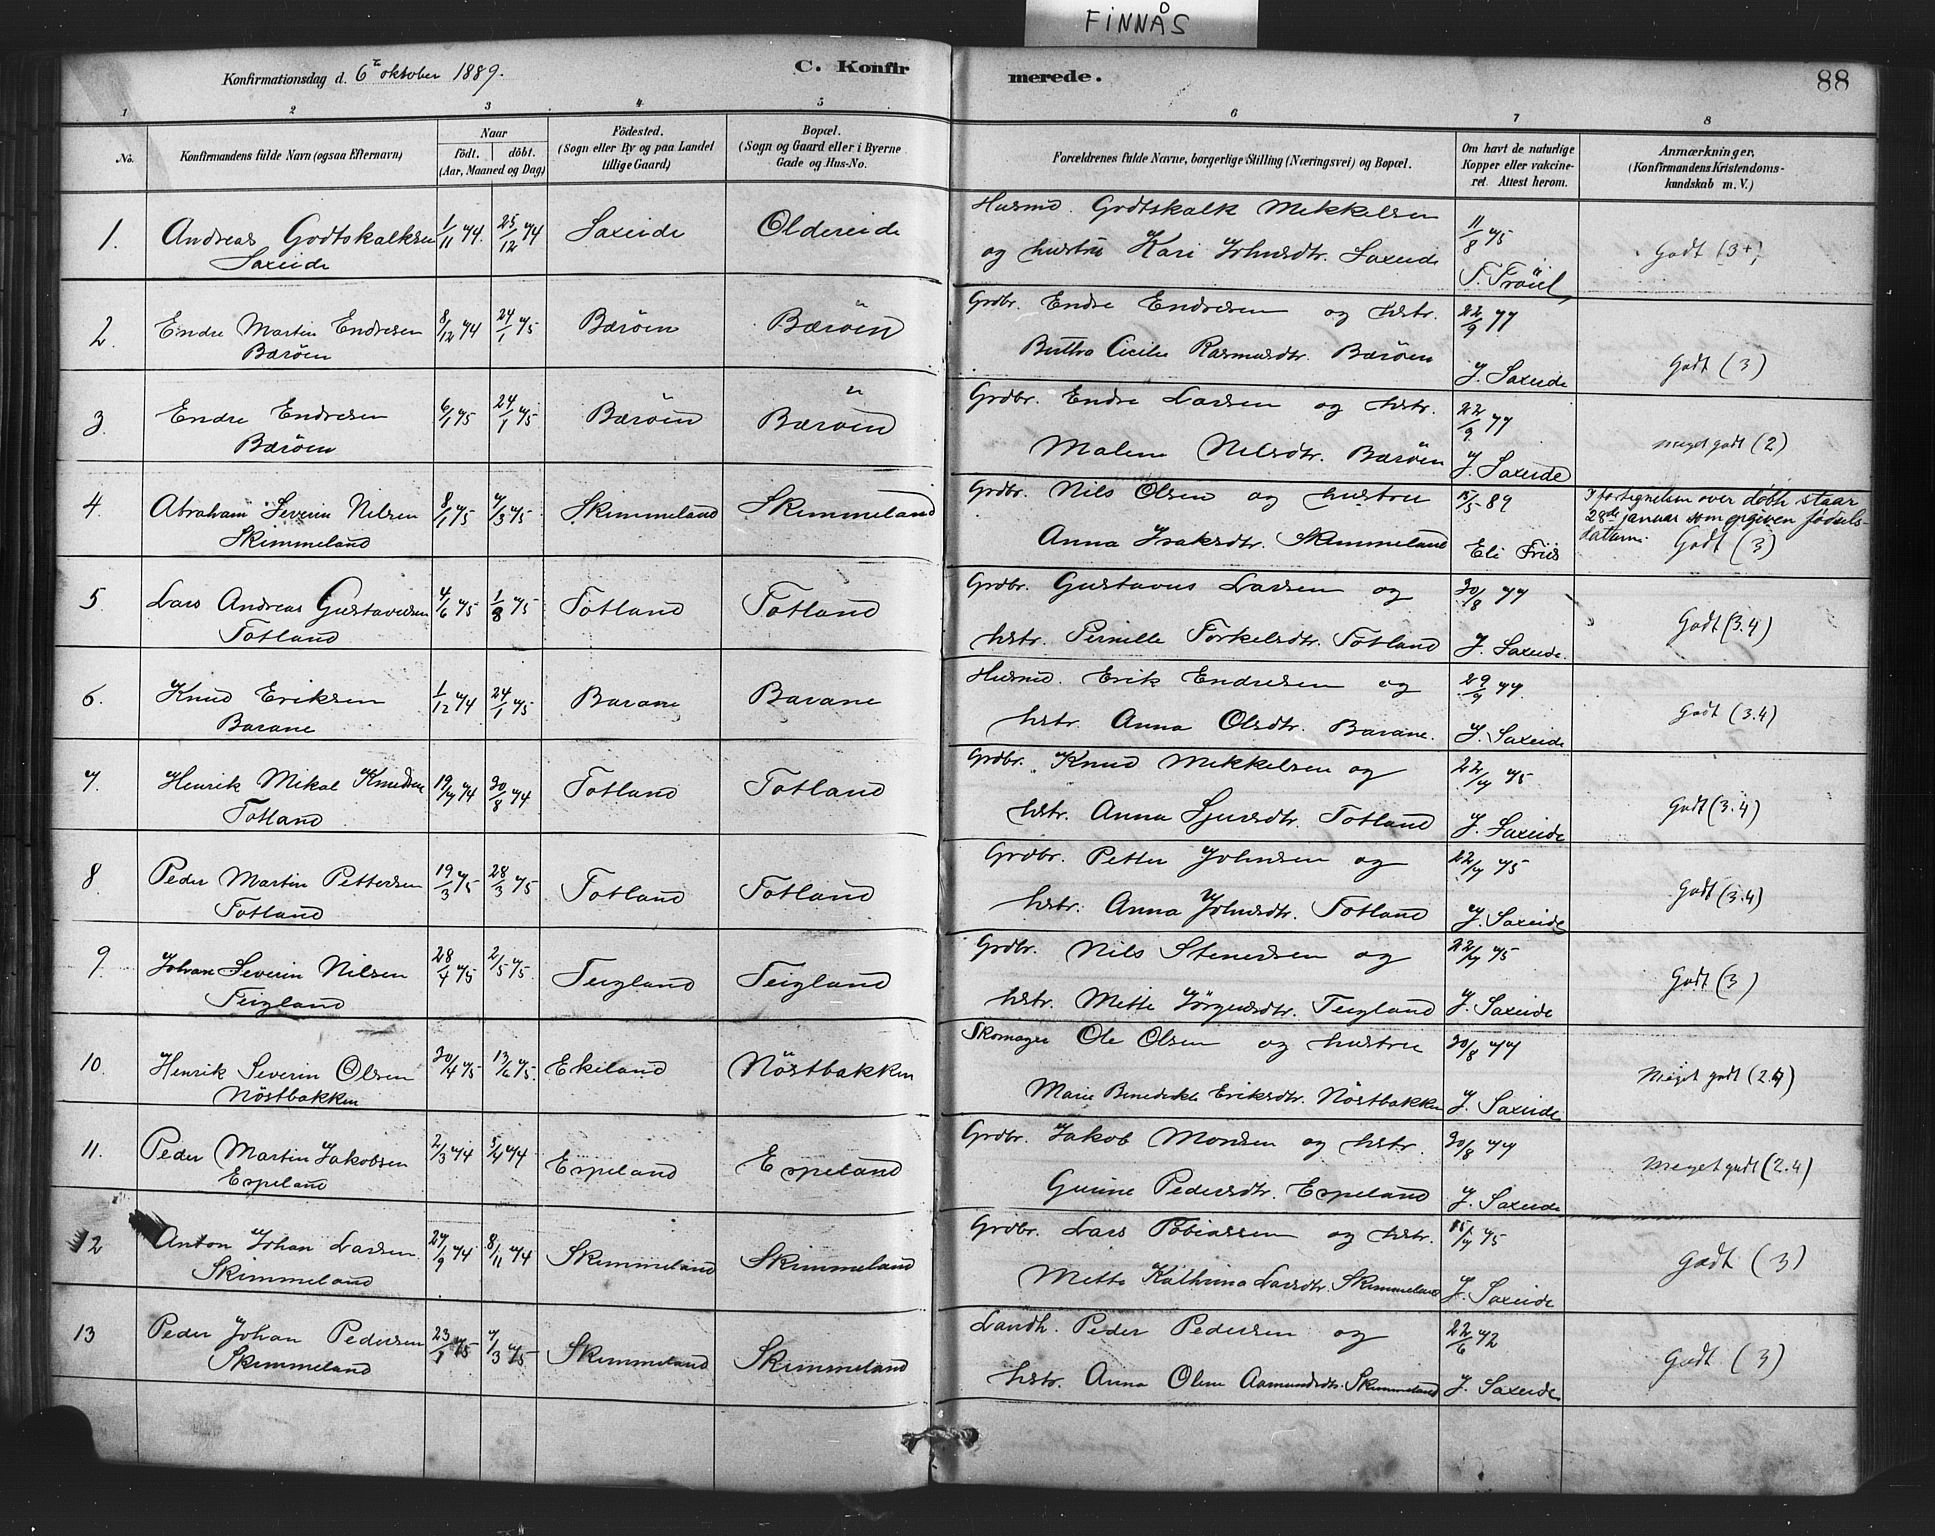 FINNÅS
Konfirmationsdag d. 6te oktober 1889.
C. Konfirmerede.
88
1 2 3 4 5 6 7 8
No.
Konfirmandens fulde Navn (ogsaa Efternavn)
Naar
födt. döbt.
(Aar, Maaned og Dag)
Födested.
(Sogn eller By og paa Landet
tillige Gaard)
Bopæl.
(Sogn og Gaard eller i Byerne
Gade og Hus-No.
Forældrenes fulde Navne, borgerlige Stilling (Næringsvei) og Bopæl.
Om havt de naturlige
Kopper eller vakcine-
ret. Attest herom.
Anmærkninger,
(Konfirmandens Kristendoms-
kundskab m. V.)
1. Andreas Godtskalksen 1/11 74. 25/12 74 Saxeide Oldereide Husmd. Godtskalk Mikkelsen 11/8 75
Saxeide og hustru Kari Johnsdtr. Saxeide T. Tröil, Godt (3+)
2. Endre Martin Endresen 8/12 74 24/1 75 Bæröen Bæröen Grdbr. Endre Endresen og hstr. 22/9 77
Bæröen Cicilie Rasmusdtr. Bæröen J. Saxeide Godt (3)
3. Endre Endresen 6/1 75 24/1 75 Bæröen Bæröen Grdbr. Endre Larsen og hstr. 22/9 77
Bæröen Malene Nilsdtr. Bæröen J. Saxeide meget godt (2)
4. Abraham Severin Nilsen 8/1 75 7/3 75 Skimmeland Skimmeland Grdbr. Nils Olsen og hustru 15/5 89 I fortegnelsen over döbte staar
28de januar som opgiven födsels-
Skimmeland Anna Isaksdtr. Skimmeland Eli Friis datum. Godt (3)
5. Lars Andreas Gustavsen 4/6 75 1/8 75 Totland Totland Grdbr. Gustavus Larsen og 30/8 77
Totland hstr. Pernille Torkelsdtr. Totland J. Saxeide. Godt (3.4)
6. Knud Eriksen 1/12 74 24/1 75 Barane Barane Husmd. Erik Endresen og 29/9 77.
Barane hstr. Anna Olsdtr. Barane. J. Saxeide Godt (3.4)
7. Henrik Mikal Knudsen 19/7 74 30/8 74 Totland Totland Grdbr. Knud Mikkelsen og 22/7 75
Totland hstr. Anna Sjursdtr. Totland J. Saxeide Godt (3.4)
8. Peder Martin Pettersen 19/3 75 28/3 75 Totland Totland Grdbr. Petter Johnsen og 22/7 75
Totland hstr. Anna Johnsdtr. Totland J. Saxeide Godt (3.4)
9. Johan Severin Nilsen 28/4 75 2/5 75. Teigland Teigland Grdbr. Nils Stenersen og 22/7 75
Teigland hstr. Mette Jörgensdtr. Teigland J. Saxeide Godt (3)
10. Henrik Severin Olsen 30/4 75 13/6 75. Ekeland Nöstbakken Skomager Ole Olsen og hustru 30/8 77
Nöstbakken Marie Benedikte Eriksdtr. Nöstbakken J. Saxeide Meget godt (2.4)
11. Peder Martin Jakobsen 2/3 74 5/4 74 Espeland Espeland Grdbr. Jakob Monsen og hstr. 30/8 77
Espeland Gurine Pedersdtr. Espeland J. Saxeide meget godt (2.4)
12 Anton Johan Larsen 27/9 74 8/11 74 Skimmeland Skimmeland Grdbr. Lars Tobiassen og hstr. 15/7 75
Skimmeland Mette Kathrina Larsdtr. Skimmeland J. Saxeide Godt (3)
13 Peder Johan Pedersen 23/1 75 7/3 75 Skimmeland Skimmeland Landh. Peder Pedersen og 22/6 72
Skimmeland hstr. Anna Oline Aamundsdtr. Skimmeland J. Saxeide Godt (3)